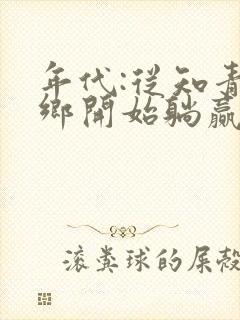 年代:從知青
鄉開始躺贏
滾糞球的屎殼